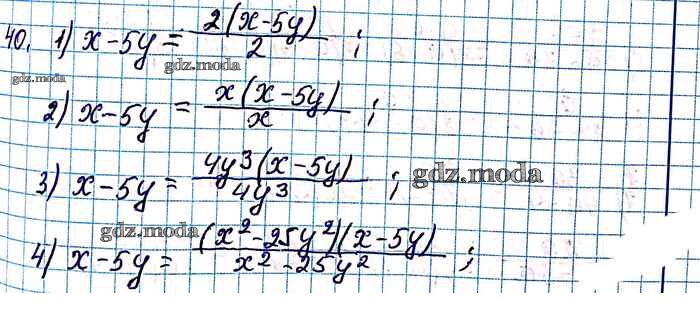 40. 1) x-5y = 2(x-5y)/2 ;
gdz.moda
gdz.moda
2) x-5y = x(x-5y)/x ;
3) x-5y = 4y³(x-5y)/4y³ ;
gdz.moda
gdz.moda
4) x-5y = (x²-25y²)(x-5y)/x²-25y² ;